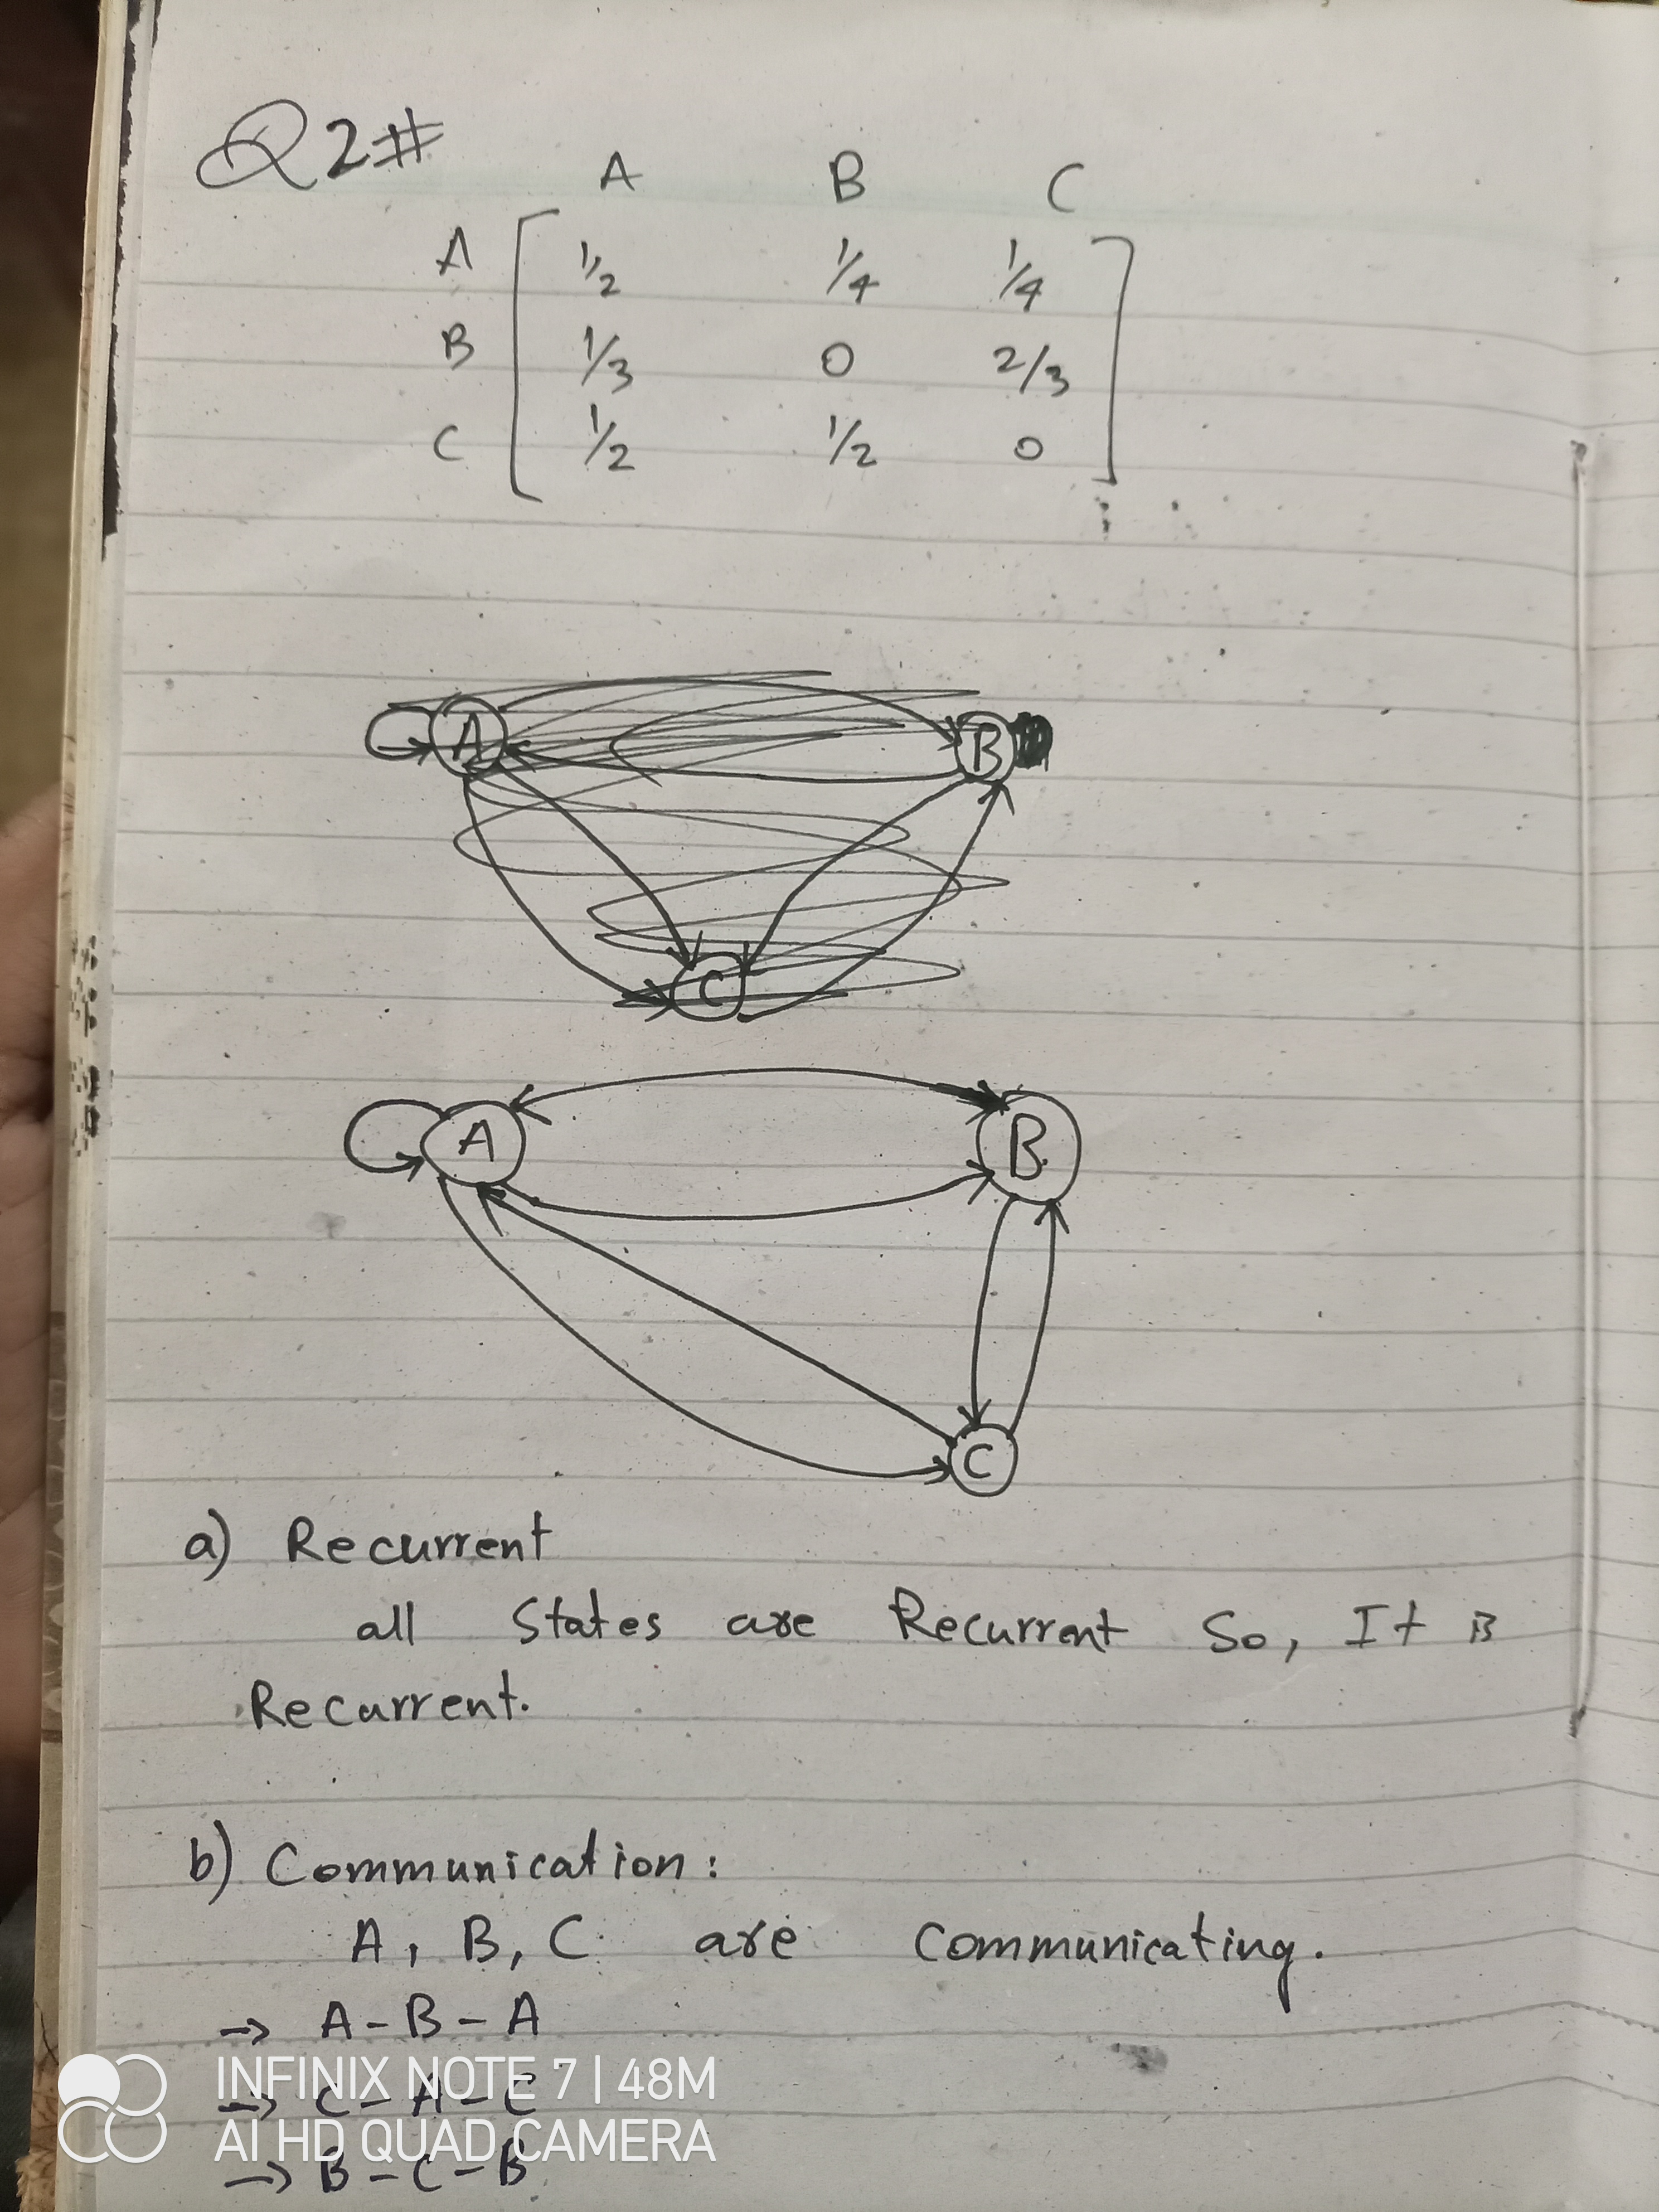 Q2#
A B C
A 1/2 1/4 1/4
B 1/3 0 2/3
C 1/2 1/2 0
A B
C
A B
C
a) Recurrent
all States are Recurrent So, It is
Recurrent.
b) Communication:
A, B, C are Communicating.
→ A - B - A
→ C - A - C
→ B - C - B
INFINIX NOTE 7 | 48M
AI HD QUAD CAMERA